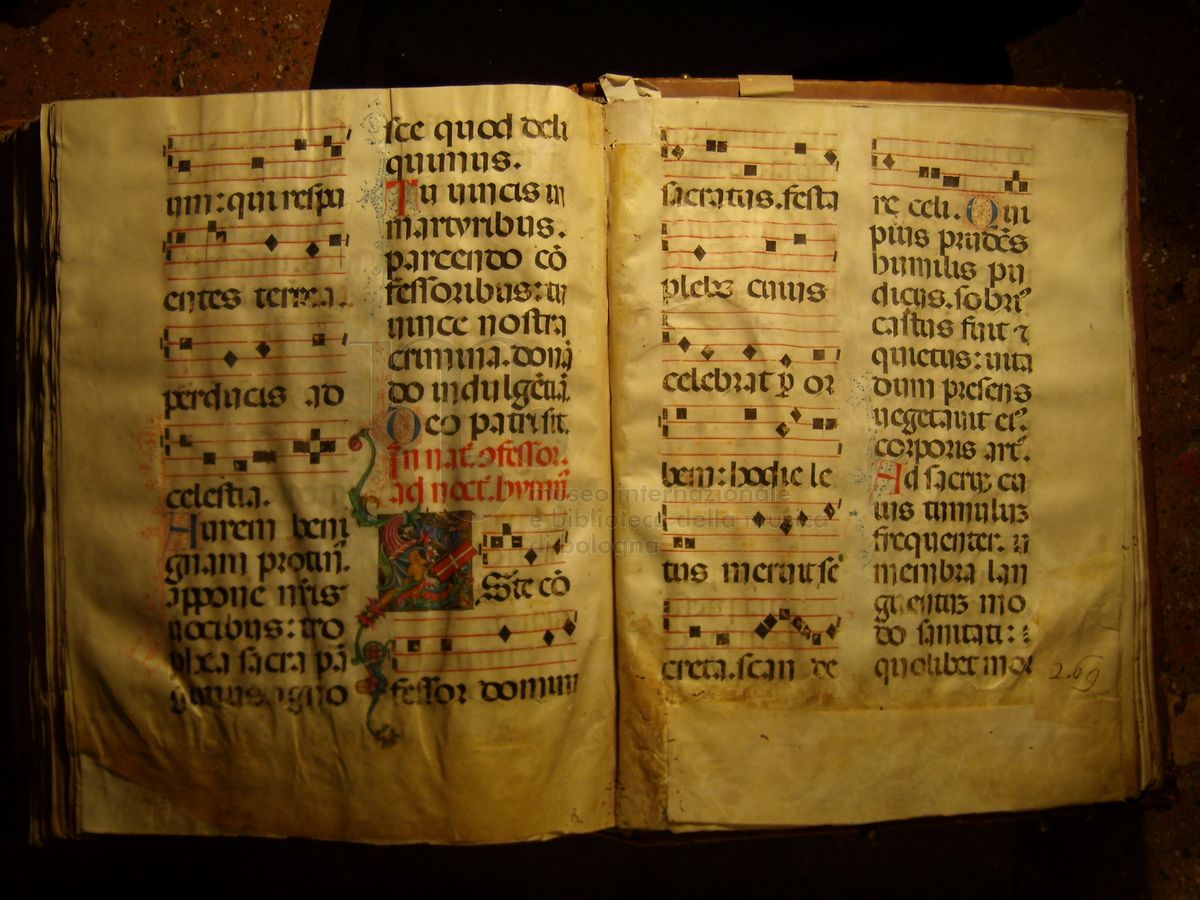 um: qui respu
entes terrea.
perducis ad
celestia.
Aurem beni
gnam protin̄.
appone nr̄is
vocibus: tro
phea sacra pā
gimus. igno
sce quod deli
quimus.
Tu vincis in
martyribus.
parcendo cō
fessoribus: tu
vince nostra
crimina. donā
do indulgētiā.
Deo patri sit.
In nat. ɔfessor.
ad noct. hymn.
Iste cō
fessor domini
sacratus. festa
plebs cuius
celebrat p̲ or
bem: hodie le
tus meruit se
creta. scan de
re celi. Qui
pius prudēs
humilis pu
dicus. sobri⁹
castus fuit ⁊
quietus: vita
dum presens
vegetavit ei⁹.
corporis art⁹.
Ad sacrū cu
ius tumulum
frequenter.
membra lan
guentiū mo
do sanitati:
quolibet mor
269
museo internazionale
e biblioteca della musica
di bologna